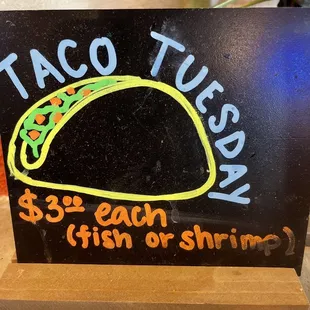 TACO TUESDAY
$3.00 each
(fish or shrimp)